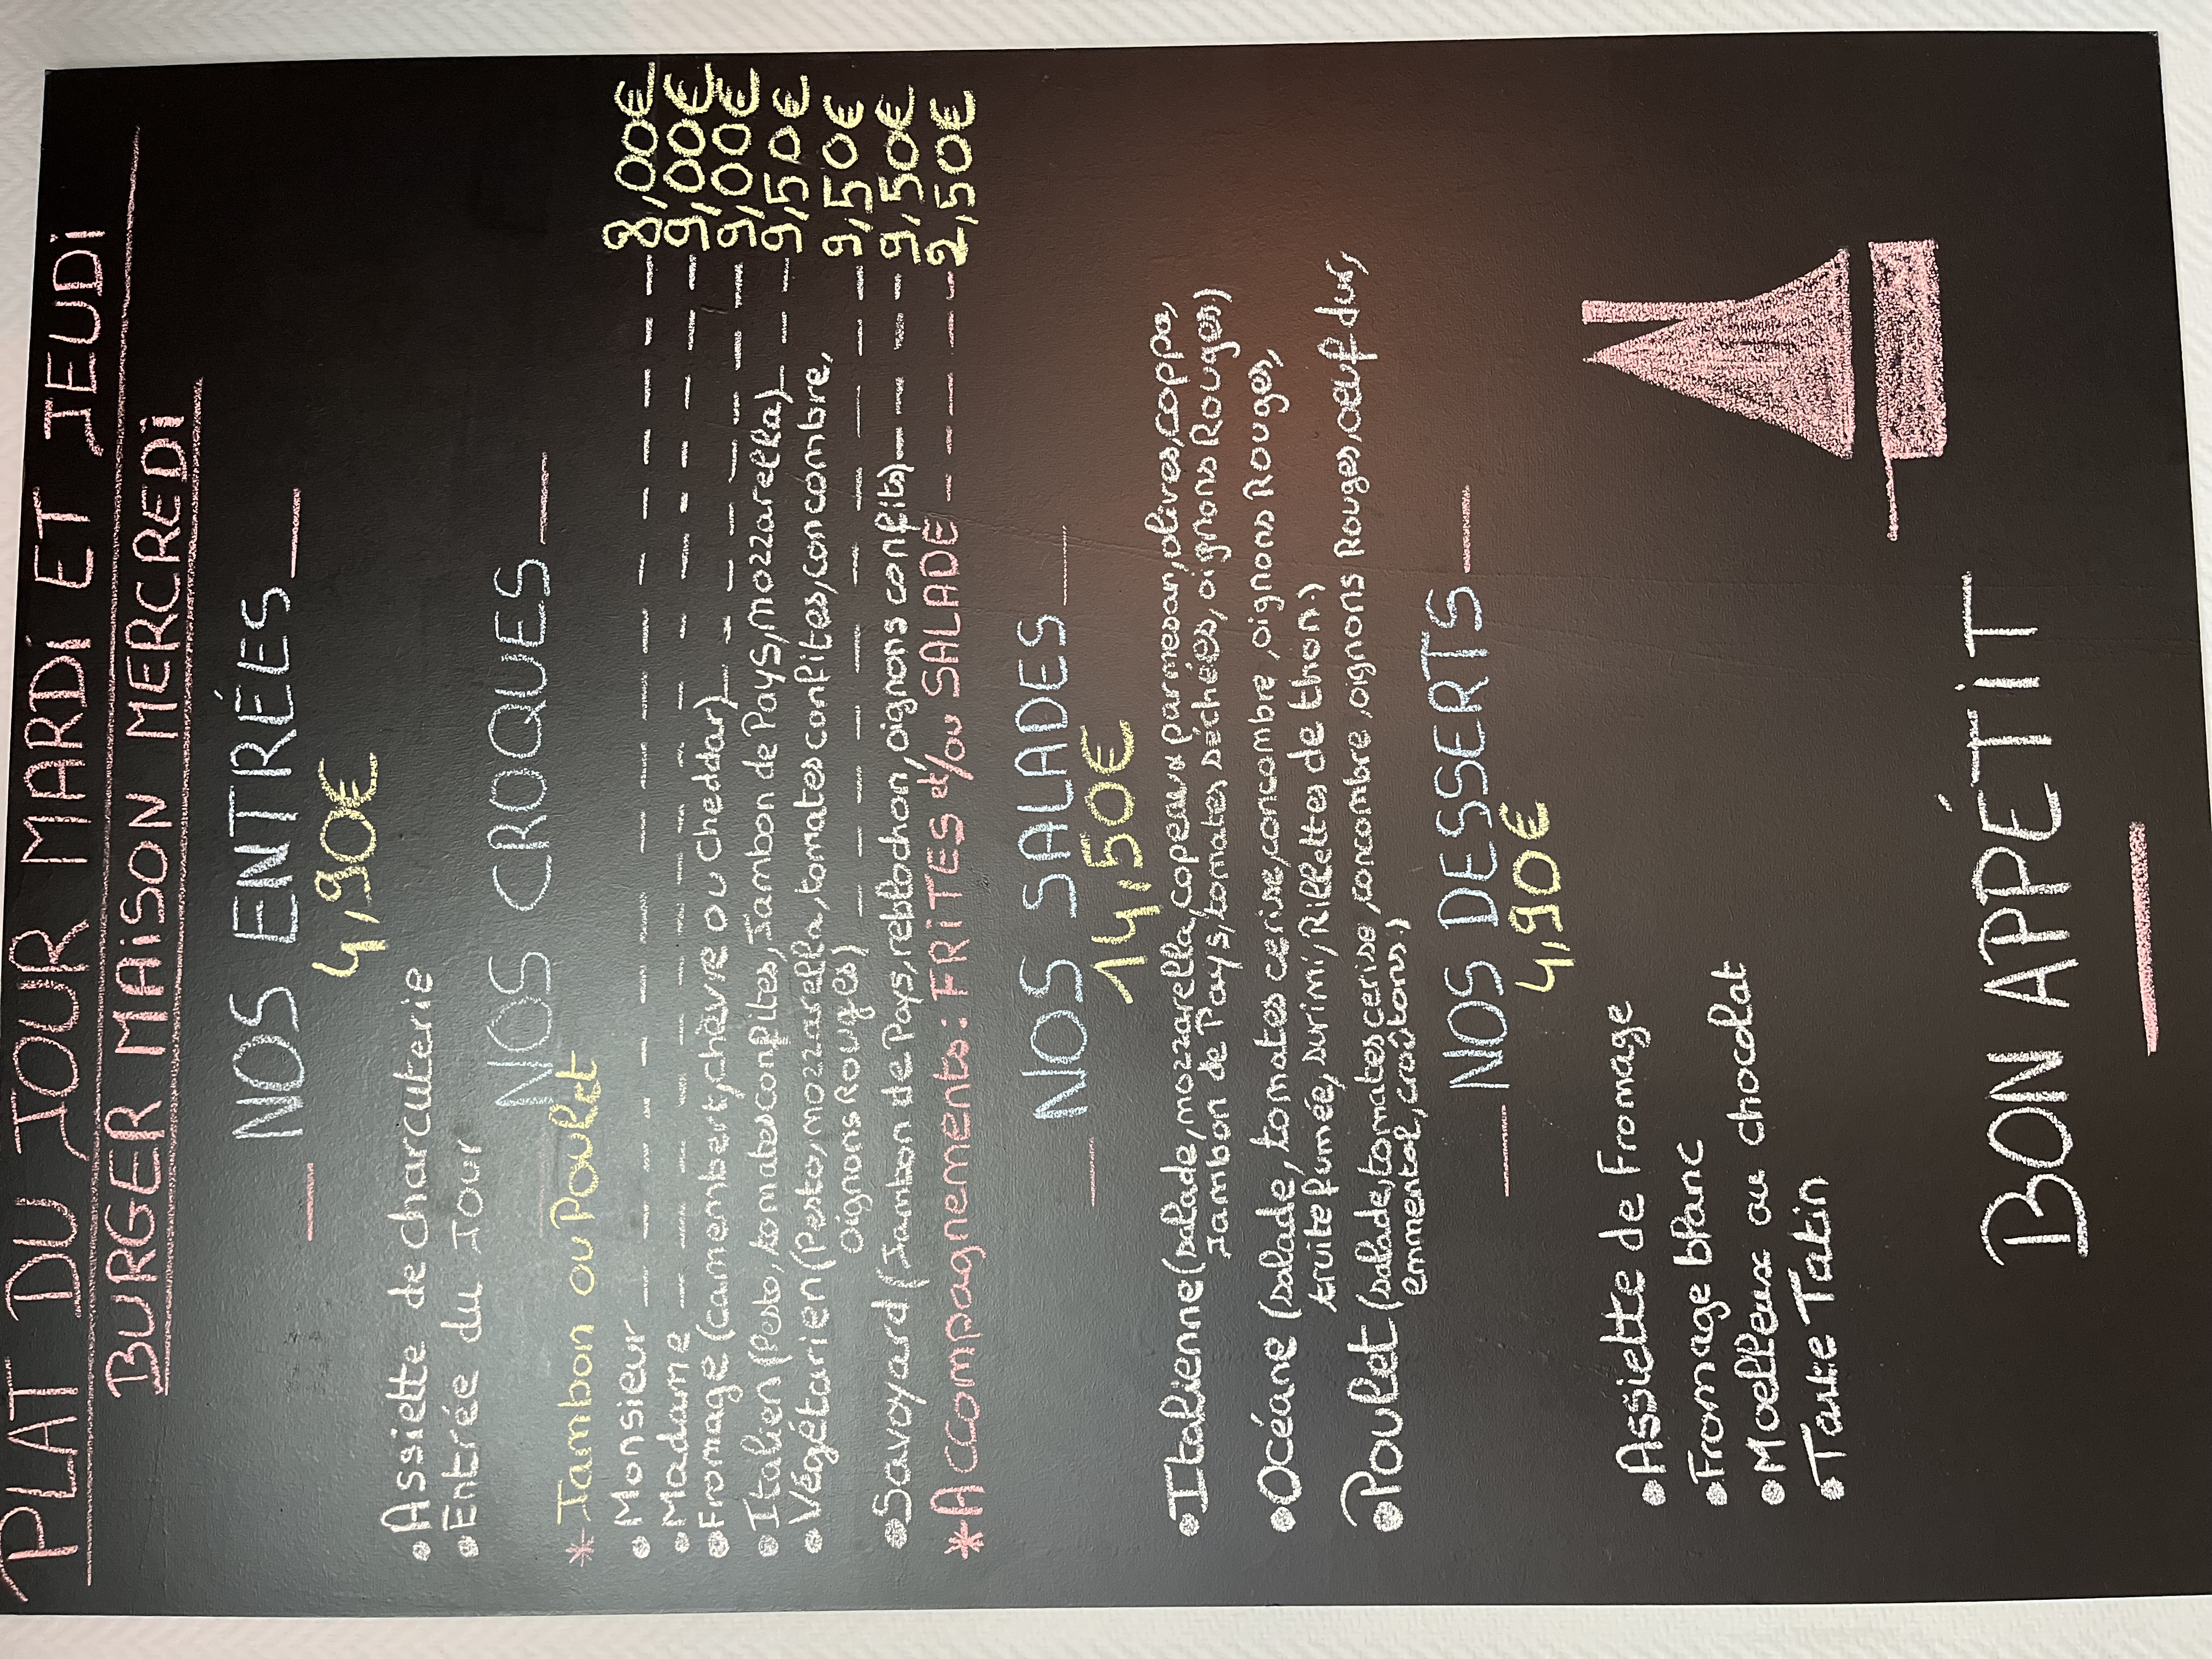 PLAT DU JOUR MARDi ET JEUDi
BURGER MAiSON MERCREDi
NOS ENTRÉES
4,90€
• Assiette de charcuterie
• Entrée du Jour
NOS CROQUES
* Jambon ou Poulet
• Monsieur 8,00€
• Madame 9,00€
• Fromage (camembert, chèvre ou cheddar) 9,00€
• Italien (Pesto, tomates confites, Jambon de Pays, mozzarella) 9,50€
• Végétarien (Pesto, mozzarella, tomates confites, concombre,
oignons Rouges) 9,50€
• Savoyard (Jambon de Pays, reblochon, oignons confits) 9,50€
* Accompagnements: FRiTES et/ou SALADE 2,50€
NOS SALADES
14,50€
• Italienne (salade, mozzarella, copeaux parmesan, olives, coppa,
Jambon de Pays, tomates séchées, oignons Rouges.)
• Océane (salade, tomates cerise, concombre, oignons Rouges,
truite fumée, surimi, Rillettes de thon.)
• Poulet (salade, tomates cerise, concombre, oignons Rouges, oeuf dur,
emmental, croûtons.)
NOS DESSERTS
4,90€
• Assiette de Fromage
• Fromage blanc
• Moelleux au chocolat
• Tarte Tatin
BON APPÉTiT